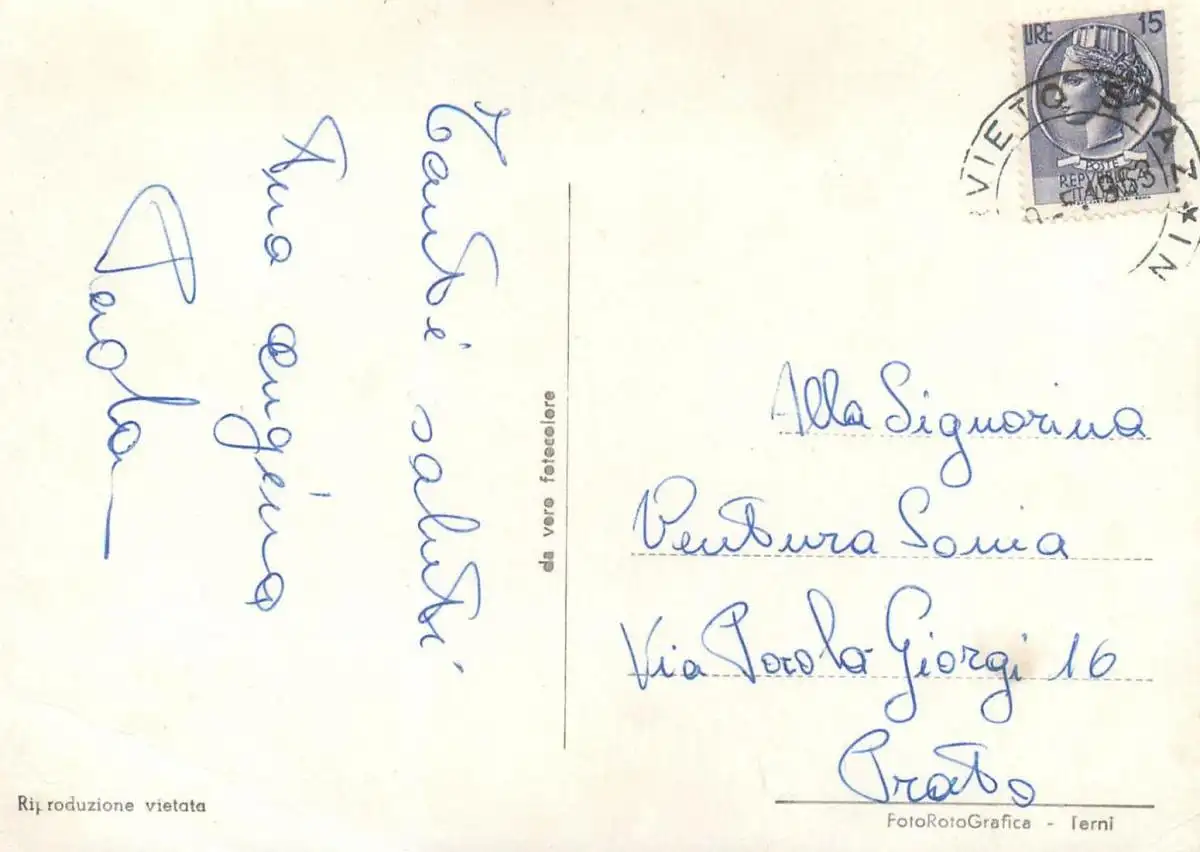 Tanti saluti
tua cugina
Paola
da vero fotocolore
Riproduzione vietata
LIRE 15
POSTE
REPVBBLICA
ITALIANA
VIETO STAZ
Alla Signorina
Ventura Sonia
Via Paola Giorgi 16
Prato
FotoRotoGrafica - Terni